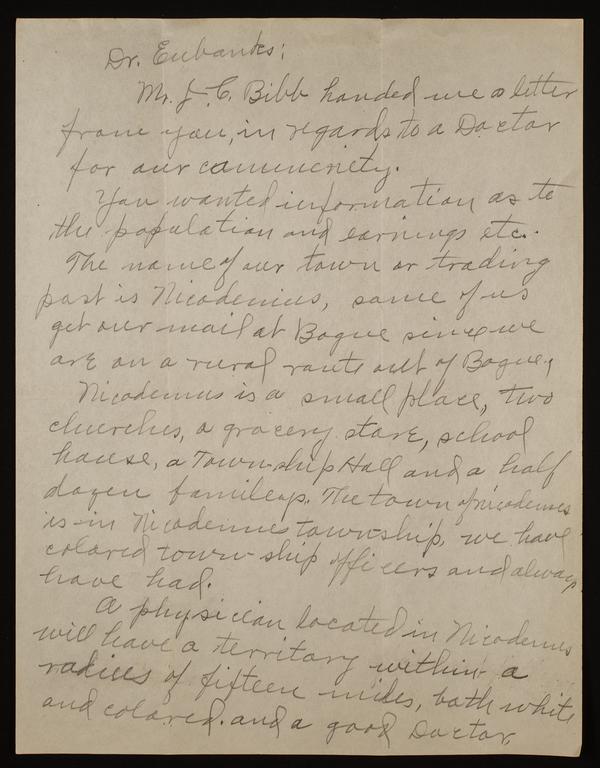 Dr. Eubanks:
Mr. J. C. Bibb handed me a letter
from you, in regards to a Doctor
for our community.
You wanted information as to
the population and earnings etc.
The name of our town or trading
post is Nicodemus, some of us
get our mail at Bogue since we
are on a rural route out of Bogue,
Nicodemus is a small place, two
churches, a grocery store, school
house, a Town-ship Hall and a half
dozen famileys. The town of nicodemus
is in Nicodemus township, we have
colored town-ship officers and always
have had.
A physician located in Nicodemus
will have a territory within a
radius of fifteen miles, both white
and colored. and a good Doctor,